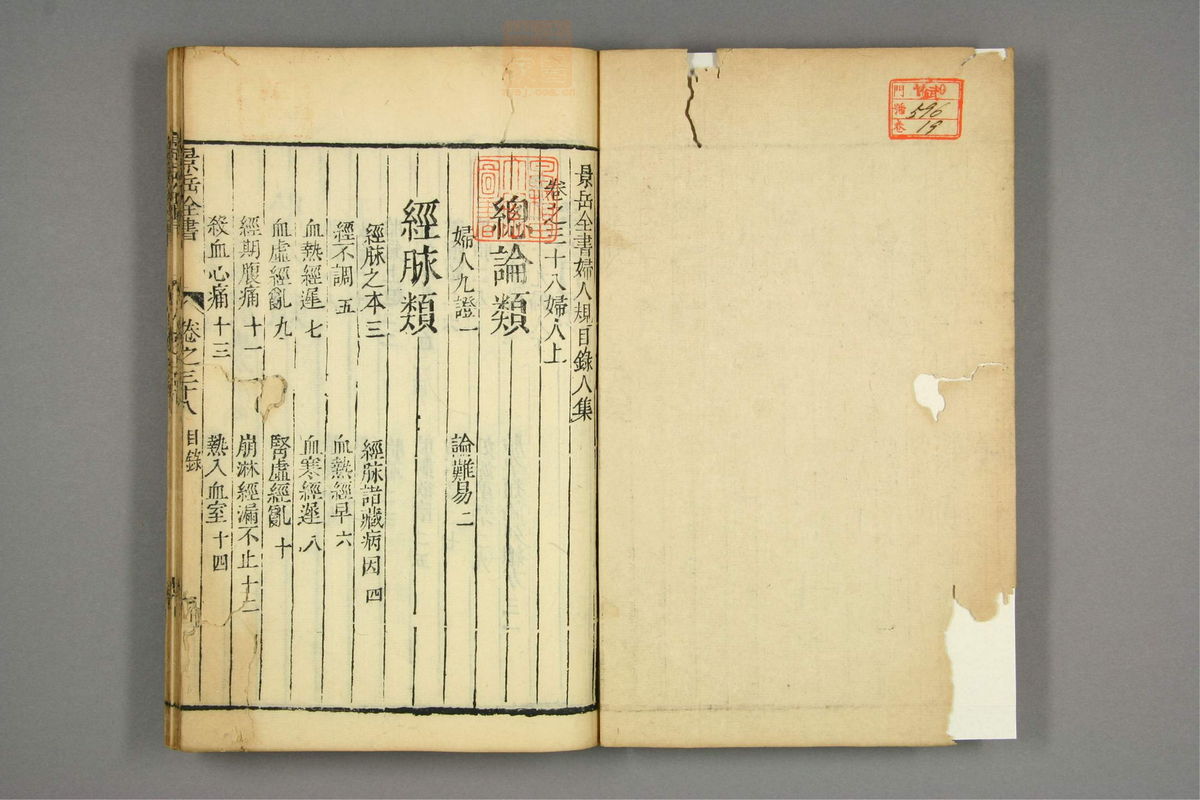 景岳全書婦人規目錄人集
卷之三十八婦人上
總論類
婦人九證 一
論難易 二
經脉類
經脉之本 三
經脉諸臟病因 四
經不調 五
血熱經早 六
血熱經遲 七
血寒經遲 八
血虛經亂 九
腎虛經亂 十
經期腹痛 十一
崩淋經漏不止 十二
殺血心痛 十三
熱入血室 十四
景岳全書
卷之三十八
目錄
圖書
門
番
卷
596
19